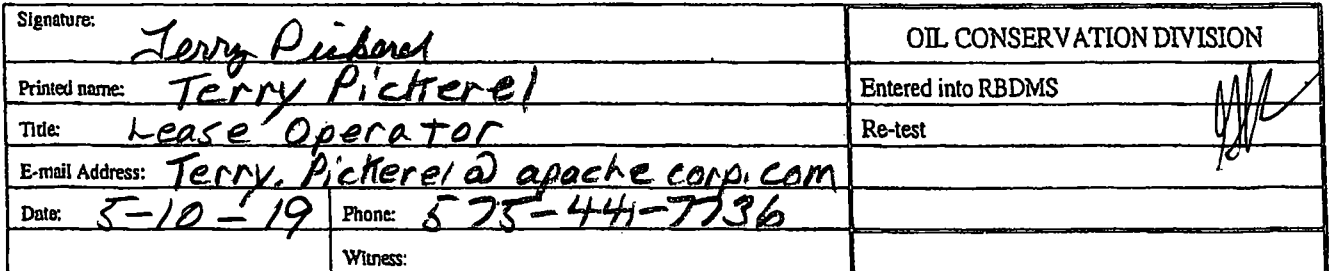 Signature: Terry Pickerel
Printed name: Terry Pickerel
Title: Lease Operator
E-mail Address: Terry.Pickerel@apachecorp.com
Date: 5-10-19 Phone: 575-441-7736
Witness:
OIL CONSERVATION DIVISION
Entered into RBDMS
Re-test